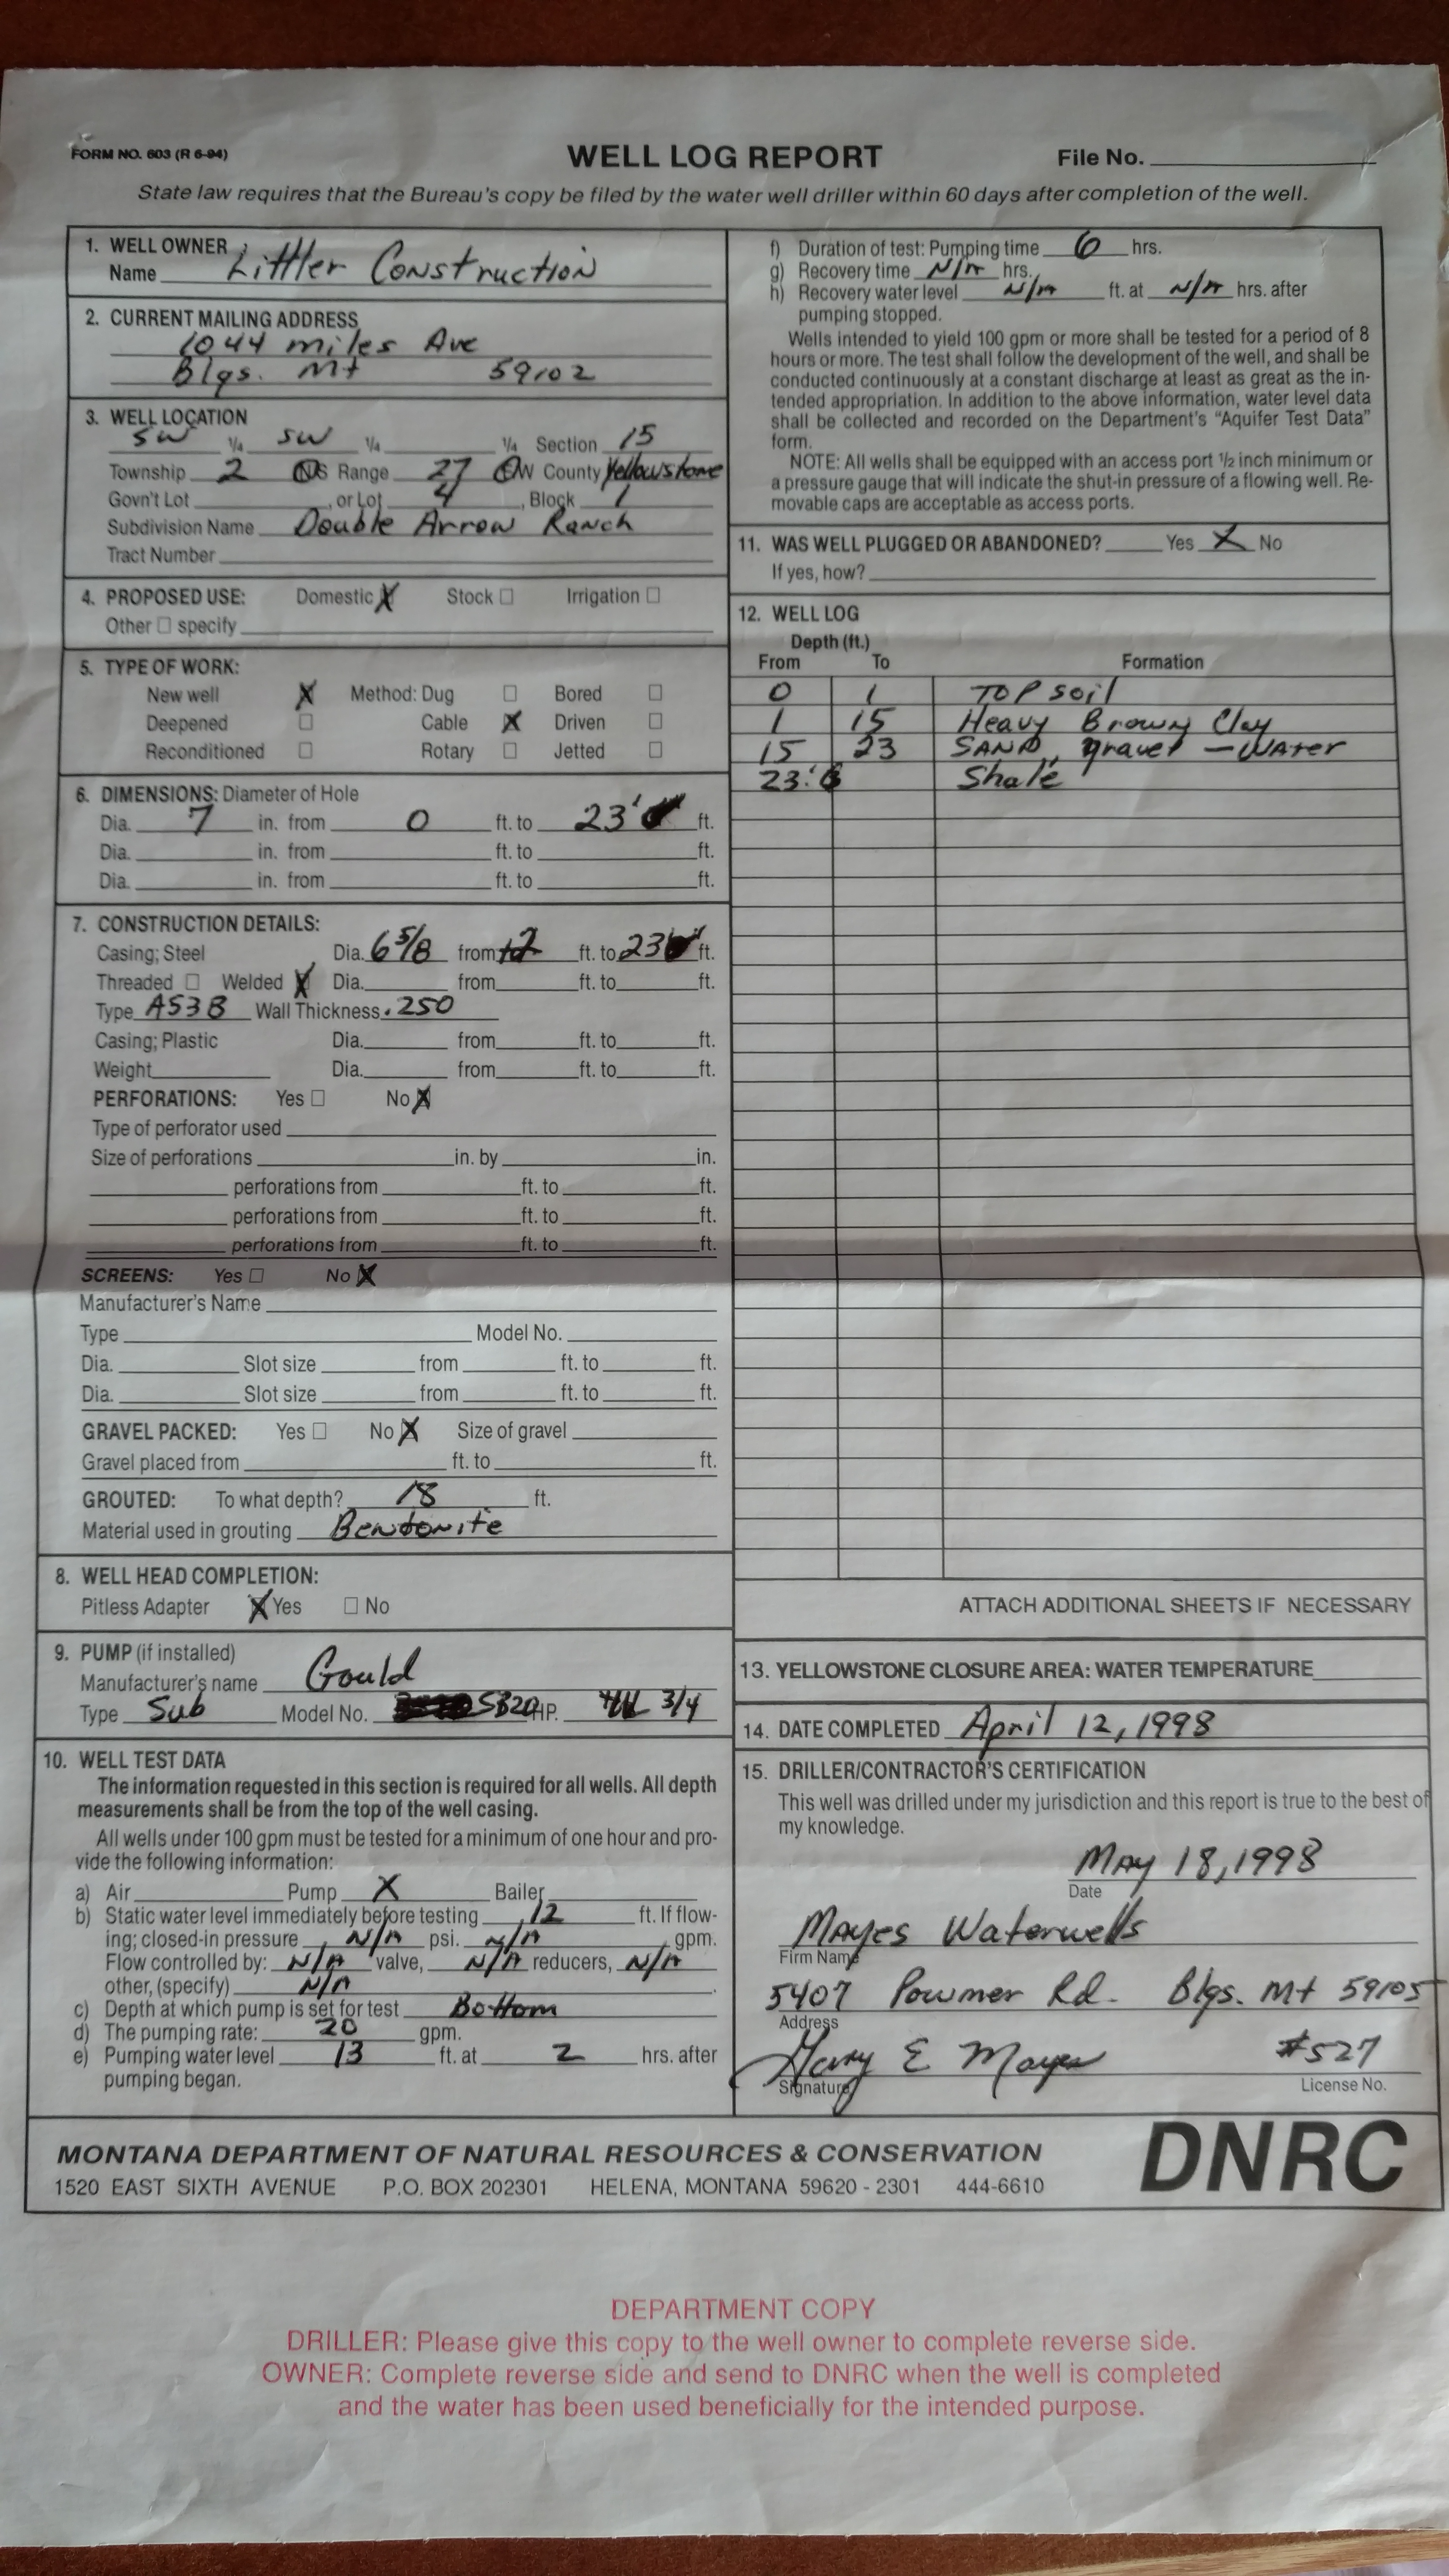 FORM NO. 603 (R 6-94)
WELL LOG REPORT
File No.
State law requires that the Bureau's copy be filed by the water well driller within 60 days after completion of the well.
1. WELL OWNER
Name Littler Construction
2. CURRENT MAILING ADDRESS
1044 miles Ave
Blgs. Mt 59102
3. WELL LOCATION
SW 1/4 SW 1/4 1/4 Section 15
Township 2 N S Range 27 E W County Yellowstone
Gov'n't Lot , or Lot 4 , Block 1
Subdivision Name Double Arrow Ranch
Tract Number
4. PROPOSED USE: Domestic X Stock □ Irrigation □
Other □ specify
5. TYPE OF WORK:
New well X Method: Dug □ Bored □
Deepened □ Cable X Driven □
Reconditioned □ Rotary □ Jetted □
6. DIMENSIONS: Diameter of Hole
Dia. 7 in. from 0 ft. to 23' ft.
Dia. in. from ft. to ft.
Dia. in. from ft. to ft.
7. CONSTRUCTION DETAILS:
Casing; Steel Dia. 6 5/8 from +2 ft. to 23 ft.
Threaded □ Welded X Dia. from ft. to ft.
Type A53B Wall Thickness .250
Casing; Plastic Dia. from ft. to ft.
Weight Dia. from ft. to ft.
PERFORATIONS: Yes □ No X
Type of perforator used
Size of perforations in. by in.
perforations from ft. to ft.
perforations from ft. to ft.
perforations from ft. to ft.
SCREENS: Yes □ No X
Manufacturer's Name
Type Model No.
Dia. Slot size from ft. to ft.
Dia. Slot size from ft. to ft.
GRAVEL PACKED: Yes □ No X Size of gravel
Gravel placed from ft. to ft.
GROUTED: To what depth? 18 ft.
Material used in grouting Bentonite
8. WELL HEAD COMPLETION:
Pitless Adapter X Yes □ No
9. PUMP (if installed)
Manufacturer's name Gould
Type Sub Model No. SB20 HP. 3/4
10. WELL TEST DATA
The information requested in this section is required for all wells. All depth
measurements shall be from the top of the well casing.
All wells under 100 gpm must be tested for a minimum of one hour and pro-
vide the following information:
a) Air Pump X Bailer
b) Static water level immediately before testing 12 ft. If flow-
ing; closed-in pressure N/A psi. N/A gpm.
Flow controlled by: N/A valve, N/A reducers, N/A
other, (specify) N/A .
c) Depth at which pump is set for test Bottom
d) The pumping rate: 20 gpm.
e) Pumping water level 13 ft. at 2 hrs. after
pumping began.
f) Duration of test: Pumping time 6 hrs.
g) Recovery time N/A hrs.
h) Recovery water level N/A ft. at N/A hrs. after
pumping stopped.
Wells intended to yield 100 gpm or more shall be tested for a period of 8
hours or more. The test shall follow the development of the well, and shall be
conducted continuously at a constant discharge at least as great as the in-
tended appropriation. In addition to the above information, water level data
shall be collected and recorded on the Department's "Aquifer Test Data"
form.
NOTE: All wells shall be equipped with an access port 1/2 inch minimum or
a pressure gauge that will indicate the shut-in pressure of a flowing well. Re-
movable caps are acceptable as access ports.
11. WAS WELL PLUGGED OR ABANDONED? Yes X No
If yes, how?
12. WELL LOG
Depth (ft.)
From To Formation
0 1 TOP soil
1 15 Heavy Brown Clay
15 23 SAND, gravel – WATER
23' Shale
ATTACH ADDITIONAL SHEETS IF NECESSARY
13. YELLOWSTONE CLOSURE AREA: WATER TEMPERATURE
14. DATE COMPLETED April 12, 1998
15. DRILLER/CONTRACTOR'S CERTIFICATION
This well was drilled under my jurisdiction and this report is true to the best of
my knowledge.
MAY 18, 1998
Date
Mayes Waterwells
Firm Name
5407 Powmer Rd. Blgs. Mt 59105
Address
Gary E Mayes #527
Signature License No.
MONTANA DEPARTMENT OF NATURAL RESOURCES & CONSERVATION
1520 EAST SIXTH AVENUE P.O. BOX 202301 HELENA, MONTANA 59620 - 2301 444-6610
DNRC
DEPARTMENT COPY
DRILLER: Please give this copy to the well owner to complete reverse side.
OWNER: Complete reverse side and send to DNRC when the well is completed
and the water has been used beneficially for the intended purpose.